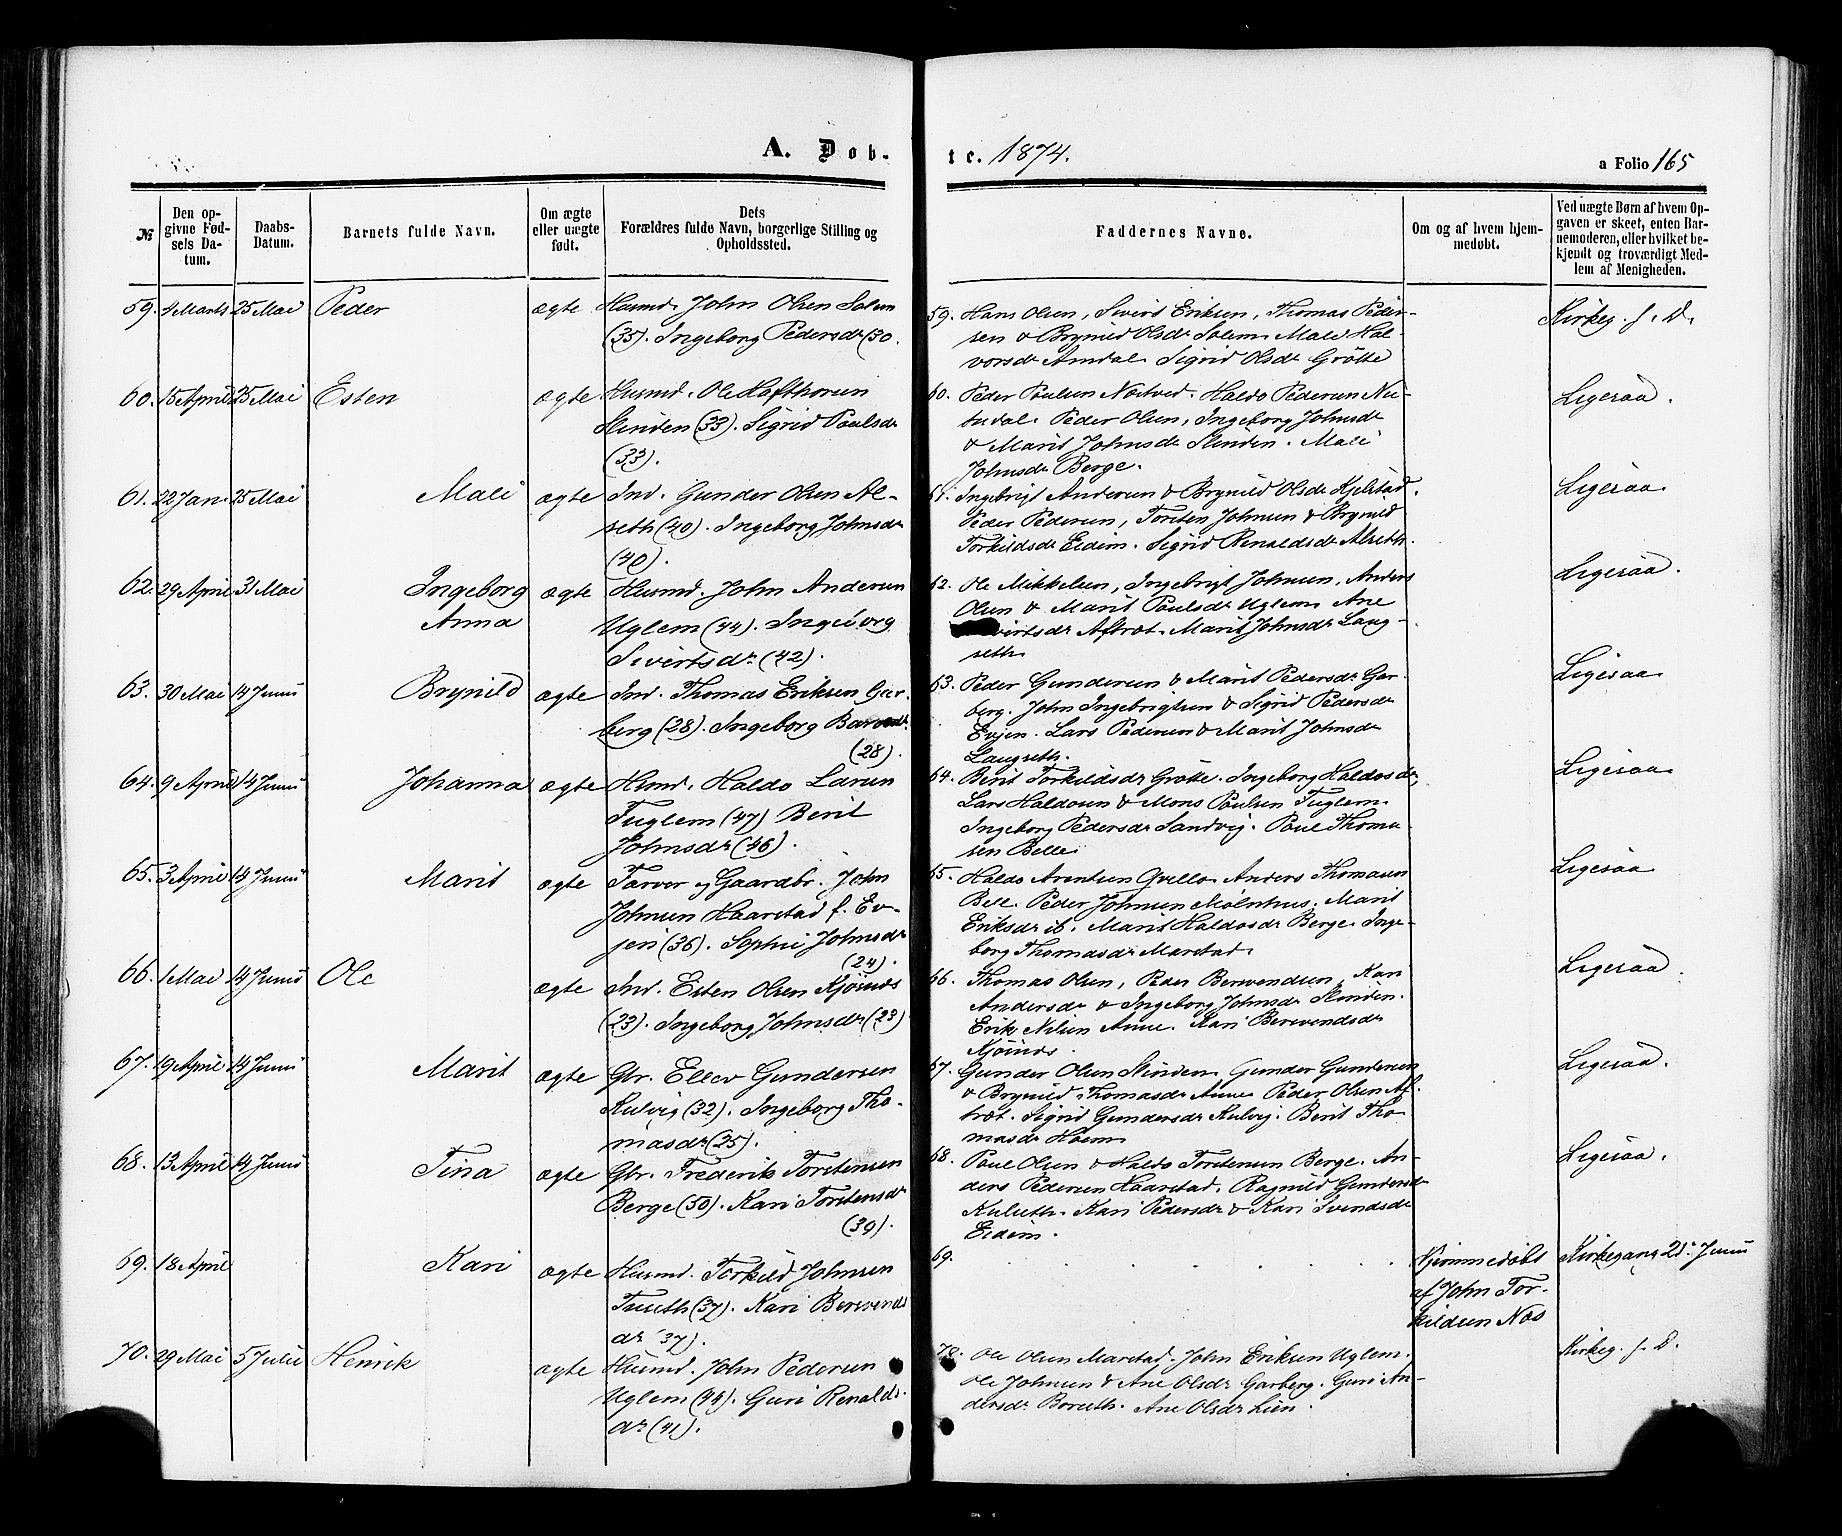 A. Døb-
te. 1874.
a Folio 165
№
Den op-
givne Fød-
sels Da-
tum.
Daabs-
Datum.
Barnets fulde Navn.
Om ægte
eller uægte
født.
Dets
Forældres fulde Navn, borgerlige Stilling og
Opholdssted.
Faddernes Navne.
Om og af hvem hjem-
medøbt.
Ved uægte Børn af hvem Op-
gaven er skeet, enten Bar-
nemoderen, eller hvilket be-
kjendt og troværdigt Med-
lem af Menigheden.
59. 4 Marts 25 Mai Peder ægte Husmd. John Olsen Solem
(35). Ingeborg Pedersdr (30.
59. Hans Olsen, Sivert Eriksen, Thomas Peder-
sen & Brynild Olsdr Solem. Mali Hal-
vorsdr Amdal. Sigrid Olsdr Grøtte
Kirkeg. s. D.
60. 15 April 25 Mai Esten ægte Husmd. Ole Hafthorsen
Slinden (33). Sigrid Paulsdr
(33).
60. Peder Paulsen Næsved. Haldo Pedersen
Peder Olsen, Ingeborg Johnsdr
& Marit Johnsdr Slinden. Mali
Johnsdr Berge.
Ligesaa.
61. 22 Jan. 25 Mai Mali ægte Ind. Gunder Olsen Al-
seth (40). Ingeborg Johnsdr
(40).
61. Ingebrigt Andersen & Brynild Olsdr Kjelstad.
Peder Pedersen, Torsten Johnsen & Brynild
Torkildsdr Eidem. Sigrid Renaldsdr Alseth.
Ligesaa.
62. 29 April 31 Mai Ingeborg
Anna ægte Husmd. John Andersen
Uglem (44). Ingeborg
Sivertsdr (42).
62. Ole Mikkelsen, Ingebrigt Johnsen, Anders
Olsen & Marit Paulsdr Uglem. Ane
Sivertsdr Aftret. Marit Johnsdr Lang-
seth.
Ligesaa.
63. 30 Mai 14 Juni Brynild ægte Ind. Thomas Eriksen Gar-
berg (28). Ingeborg
(28).
63. Peder Gundersen & Marit Pedersdr Gar-
berg. John Ingebrigtsen & Sigrid Pedersdr
Evjen. Lars Pedersen & Marit Johnsdr
Langseth.
Ligesaa
64. 9 April 14 Juni Johanna ægte Husmd. Haldo Larsen
Fuglem (47) Berit
Johnsdr (46).
64. Berit Torkildsdr Grøtte. Ingeborg Haldosdr,
Lars Haldosen & Mons Paulsen Fuglem.
Ingeborg Pedersdr Sandvig. Paul Thoma-
sen Belle.
Ligesaa
65. 3 April 14 Juni Marit ægte Farver og Gaardbr. John
Johnsen Haarstad f. Ev-
jen (36). Sophie Johnsdr
(24).
65. Haldo Arentsen Qvello. Anders Thomasen
Bell. Peder Johnsen Mølnhus. Marit
Eriksdr ib. Marit Haldosdr Berge. Inge-
borg Thomasdr Marstad.
Ligesaa
66. 1 Mai 14 Juni Ole ægte Ind. Esten Olsen Kjøsnæs
(23). Ingeborg Johnsdr (23)
66. Thomas Olsen, Peder Berevendsen, Kari
Andersdr & Ingeborg Johnsdr Slinden.
Erik Nilsen Aune. Kari Berevendsdr
Kjøsnæs.
Ligesaa.
67. 19 April 14 Juni Marit ægte Gbr. Ellev Gundersen
Kulvig (32). Ingeborg Tho-
masdr (25).
67. Gunder Olsen Slinden. Gunder Gundersen
& Brynild Thomasdr Aune. Peder Olsen Af-
tret. Sigrid Gundersdr Kulvig. Berit Tho-
masdr Hoem.
Ligesaa.
68. 13 April 14 Juni Tina ægte Gbr. Frederik Torstensen
Berge (50). Kari Torstensdr
(39).
68. Paul Olsen & Haldo Torstensen Berge. An-
ders Pedersen Haarstad. Ragnild Gundersdr
Kulseth. Kari Pedersdr & Kari Svendsdr
Eidem.
Ligesaa.
69. 18 April Kari ægte Husmd. Torkild Johnsen
Tuseth (37). Kari Berevends
dr (37).
69. . . . . . .
Hjemmedøbt
af John Tor-
kildsen Næs
Kirkegang 21. Juni
70. 29 Mai 5 Juli Henrik ægte Husmd. John Pedersen
Uglem (44). Guri Renalds-
dr (41).
70. Ole Olsen Marstad. John Eriksen Uglem.
Ole Johnsen & Ane Olsdr Garberg. Guri An-
dersdr Borseth. Ane Olsdr Lien.
Kirkeg. s. D.